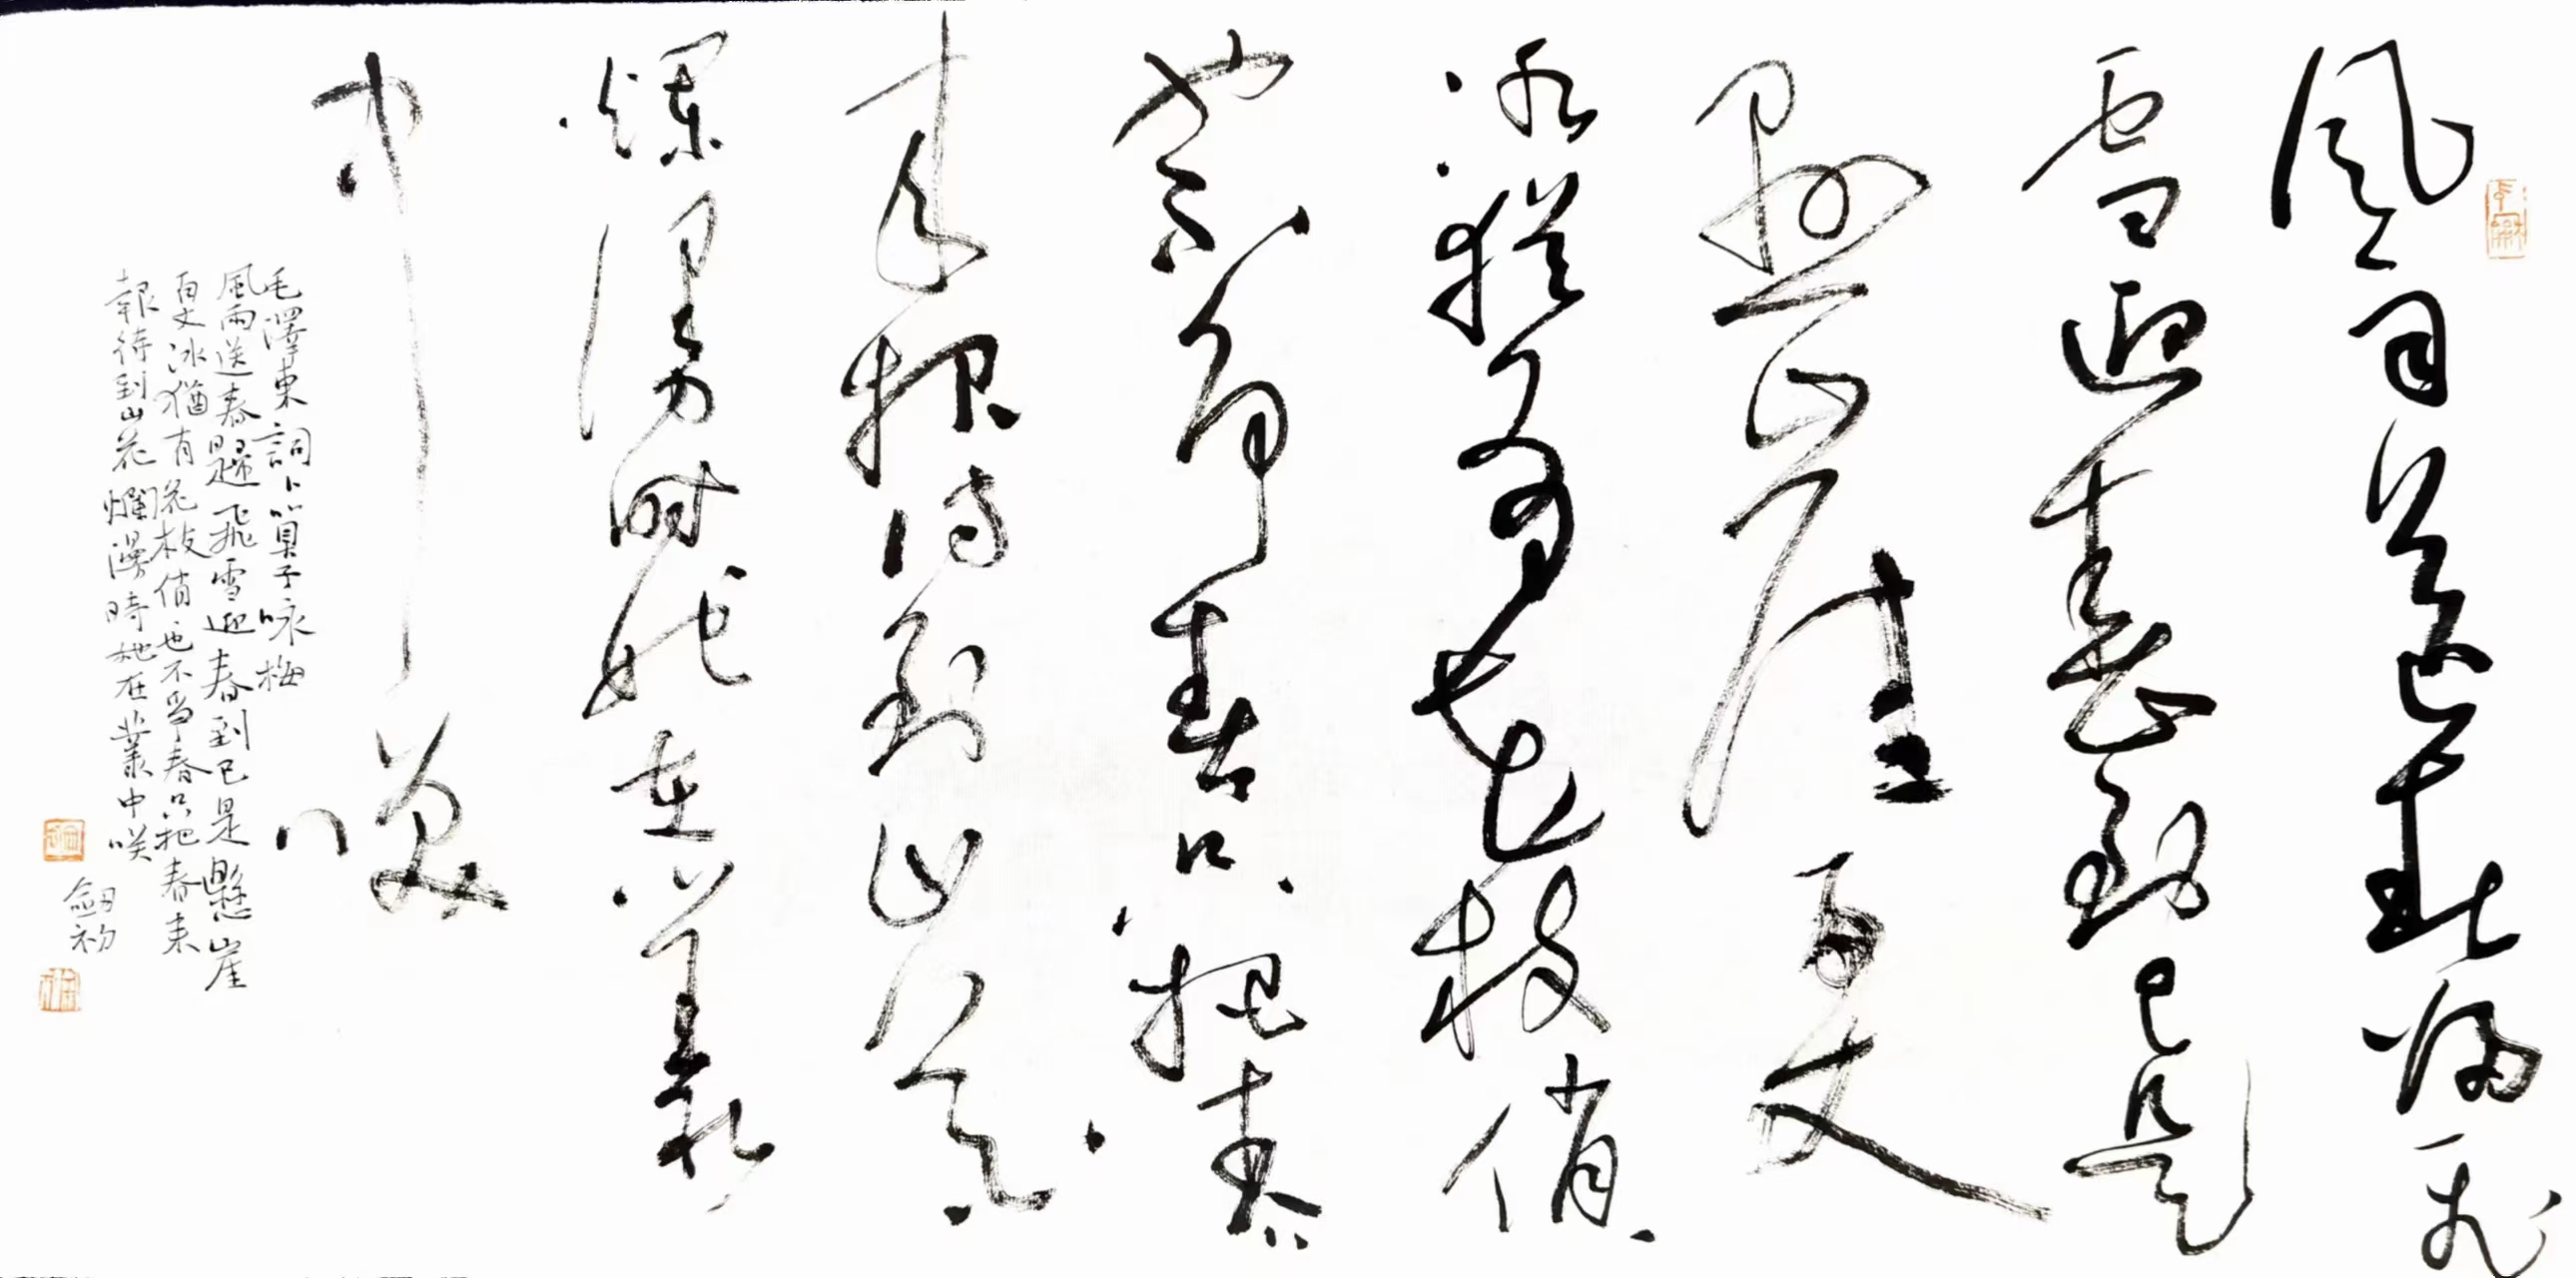 風雨送春歸飛
雪迎春到已是
懸崖百丈
冰猶有花枝俏
也不爭春只把春
来報待到山花
爛漫時她在叢
中咲
毛澤東詞卜算子咏梅
風雨送春歸飛雪迎春到已是懸崖
百丈冰猶有花枝俏也不爭春只把春来
報待到山花爛漫時她在叢中咲
劍初